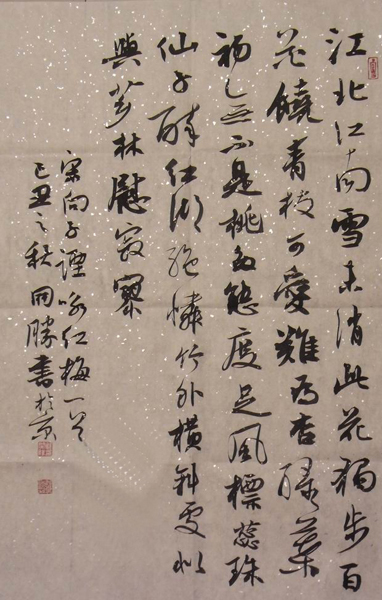 江北江南雪未消此花獨步百
花饒青枝可愛難為杏綠葉
初無不是桃多態度足風標蕊珠
仙子醉紅潮絕憐竹外橫斜處似
與薌林慰寂寥
宋向子諲詠紅梅一首
己丑之秋国勝書於京